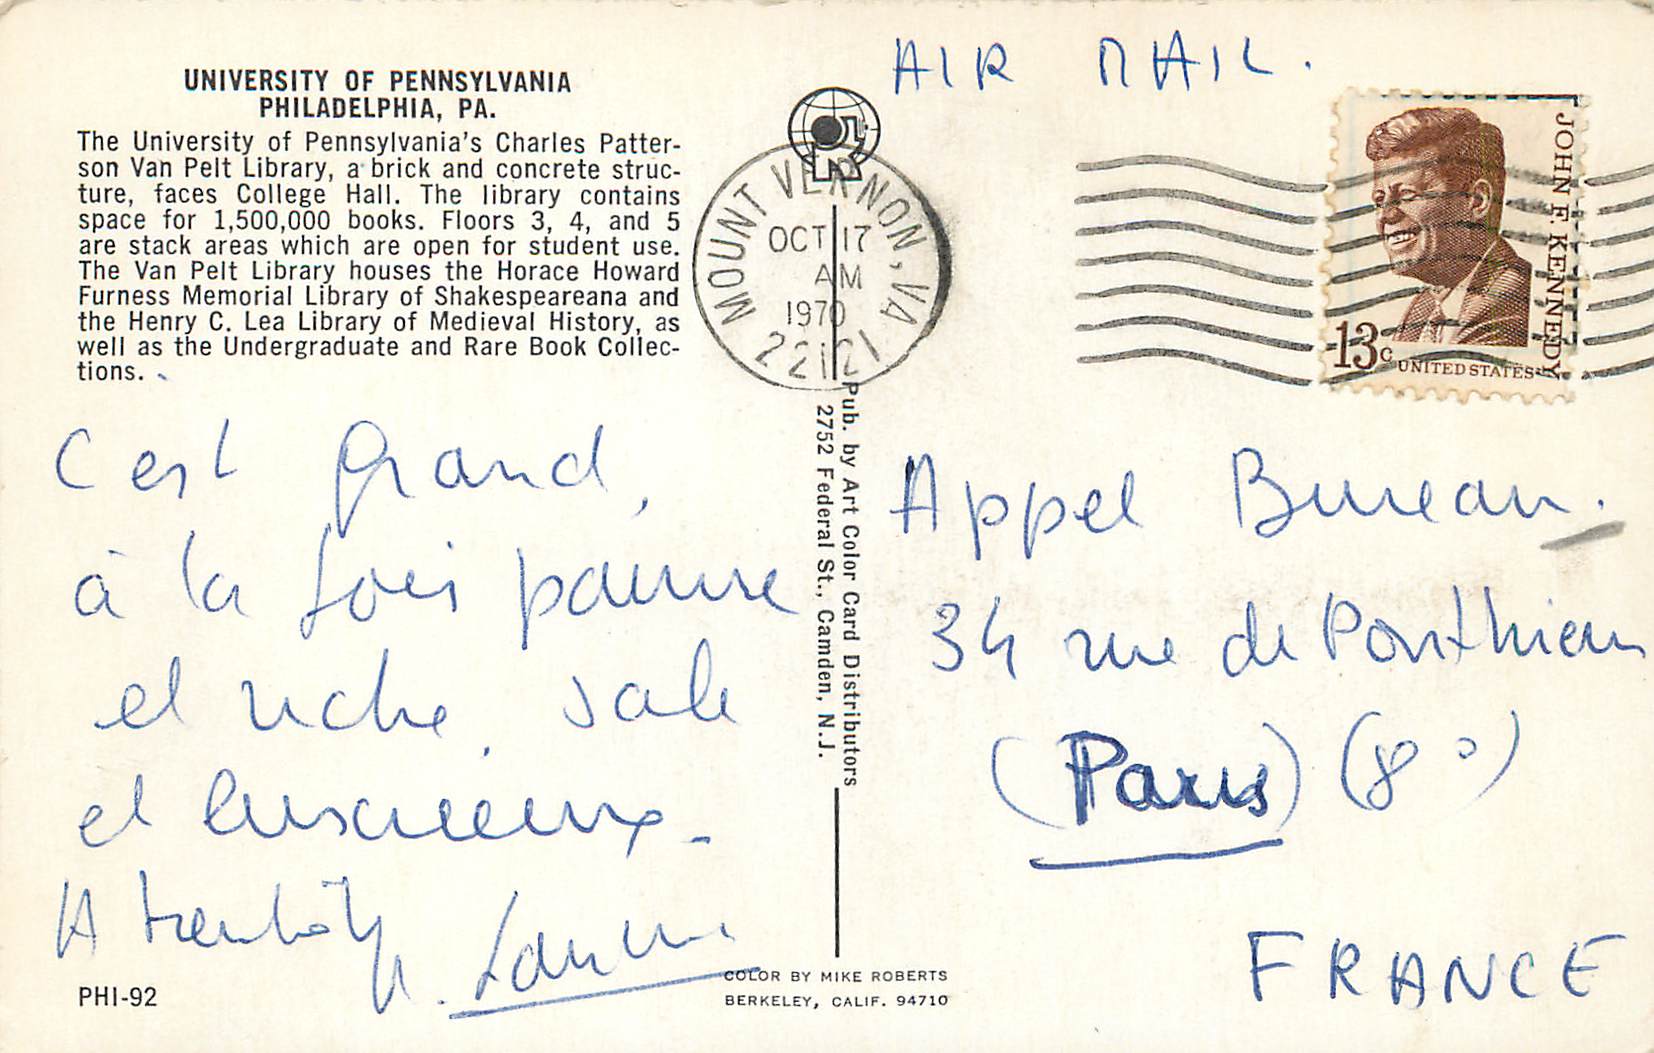 UNIVERSITY OF PENNSYLVANIA
PHILADELPHIA, PA.
The University of Pennsylvania's Charles Patter-
son Van Pelt Library, a brick and concrete struc-
ture, faces College Hall. The library contains
space for 1,500,000 books. Floors 3, 4, and 5
are stack areas which are open for student use.
The Van Pelt Library houses the Horace Howard
Furness Memorial Library of Shakespeareana and
the Henry C. Lea Library of Medieval History, as
well as the Undergraduate and Rare Book Collec-
tions.
C'est grand,
à la fois pauvre
et riche, sale
et luxueux.
A bientôt
PHI-92
MOUNT VERNON, VA
OCT 17
AM
1970
22121
Pub. by Art Color Card Distributors
2752 Federal St., Camden, N.J.
COLOR BY MIKE ROBERTS
BERKELEY, CALIF. 94710
AIR MAIL.
JOHN F. KENNEDY
13c
UNITED STATES
Appel Bureau.
34 rue de Ponthieu
(Paris) (8°)
FRANCE